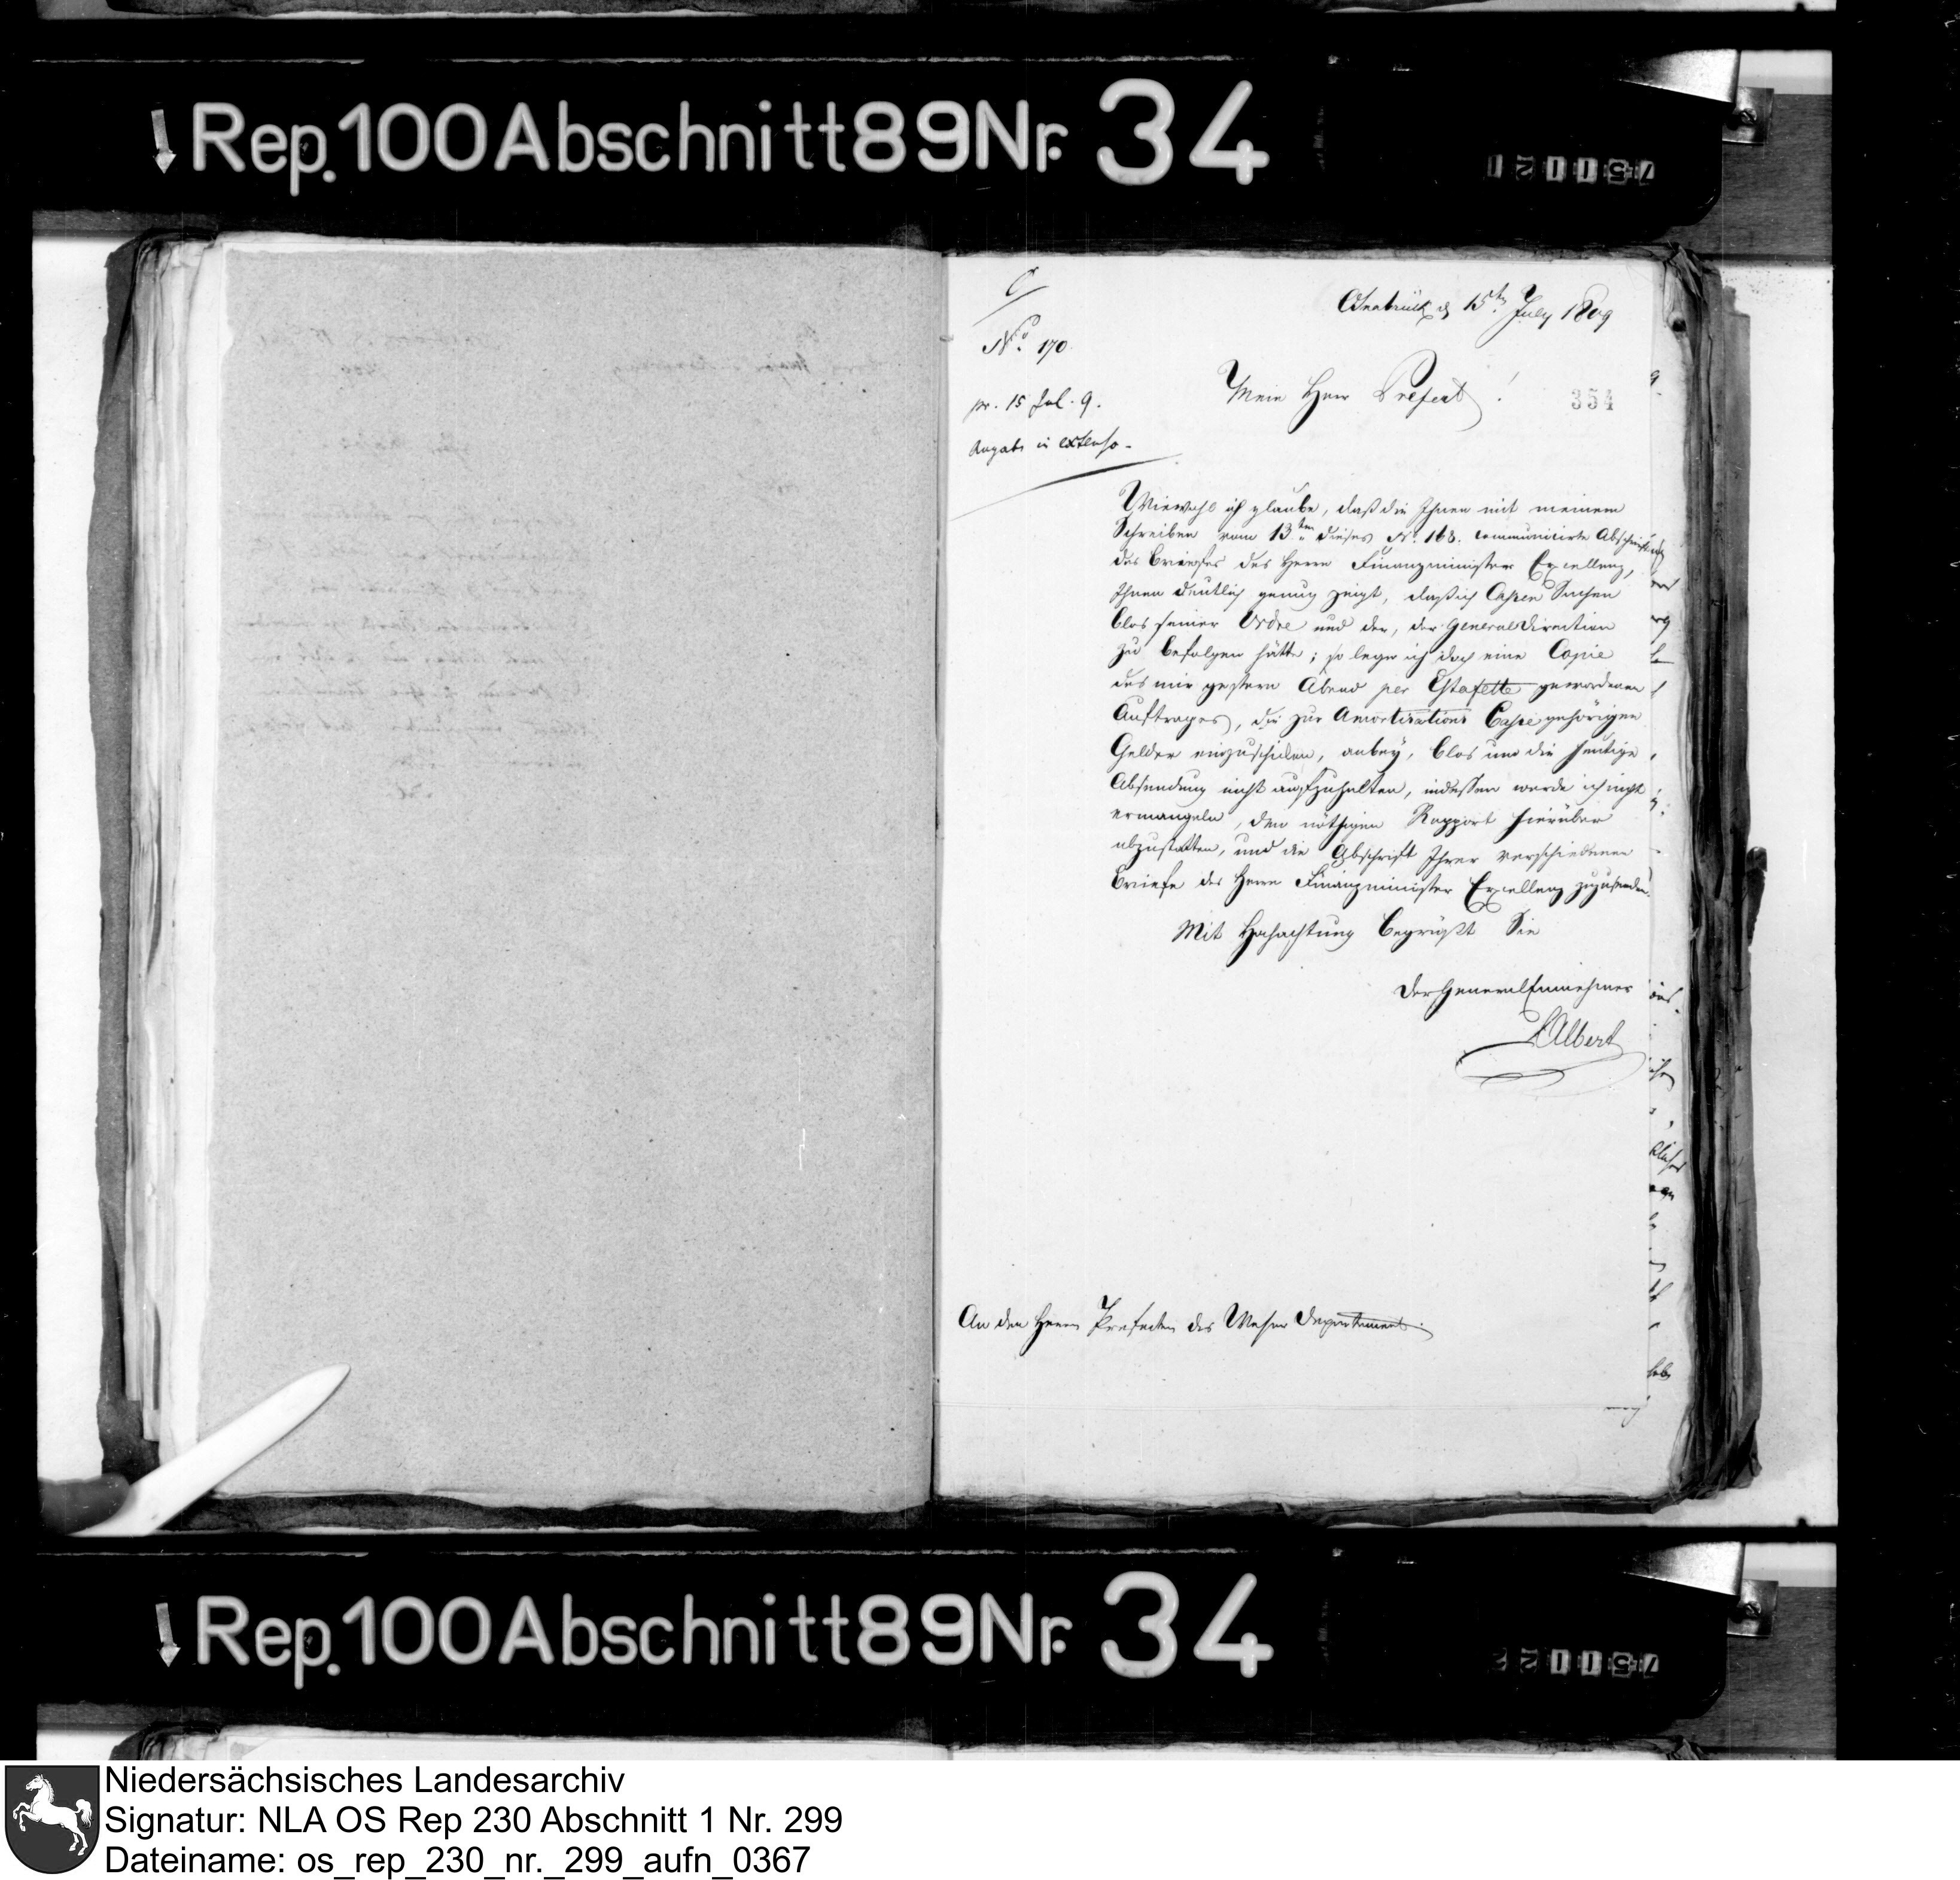 Rep. 100 Abschnitt 89 Nr. 34
C/
Osnabrück d 15ten July 1809
No. 170.
Mein Herr Prefect!
354
pr. 15 Jul. 9.
in extenso.
Wiewohl ich glaube, daß die Ihnen mit meinem
Schreiben vom 13ten dieses No. 168. communicirte Abschrift
des Briefes des Herrn Finanzminister Excellenz,
Ihnen deutlich genug zeigt, daß ich Cassen Sachen
blos seiner Ordre und der, der General Direction
zu befolgen hätte; so lege ich doch eine Copie
des mir gestern Abend per Estafette gewordenen
Auftrages, die zur Amortisations Casse gehörigen
Gelder einzuschicken, anbey, blos um die heutige
Absendung nicht aufzuhalten, indessen werde ich nicht
ermangeln, den nöthigen Rapport hierüber
abzustatten, und die Abschrift Ihrer verschiedenen
Briefe des Herrn Finanzminister Excellenz zuzusenden.
Mit Hochachtung begrüßt Sie
Der General Einnehmer
Albert
An den Herrn Prefecten des Weser Departement.
Rep. 100 Abschnitt 89 Nr. 34
Niedersächsisches Landesarchiv
Signatur: NLA OS Rep 230 Abschnitt 1 Nr. 299
Dateiname: os_rep_230_nr._299_aufn_0367